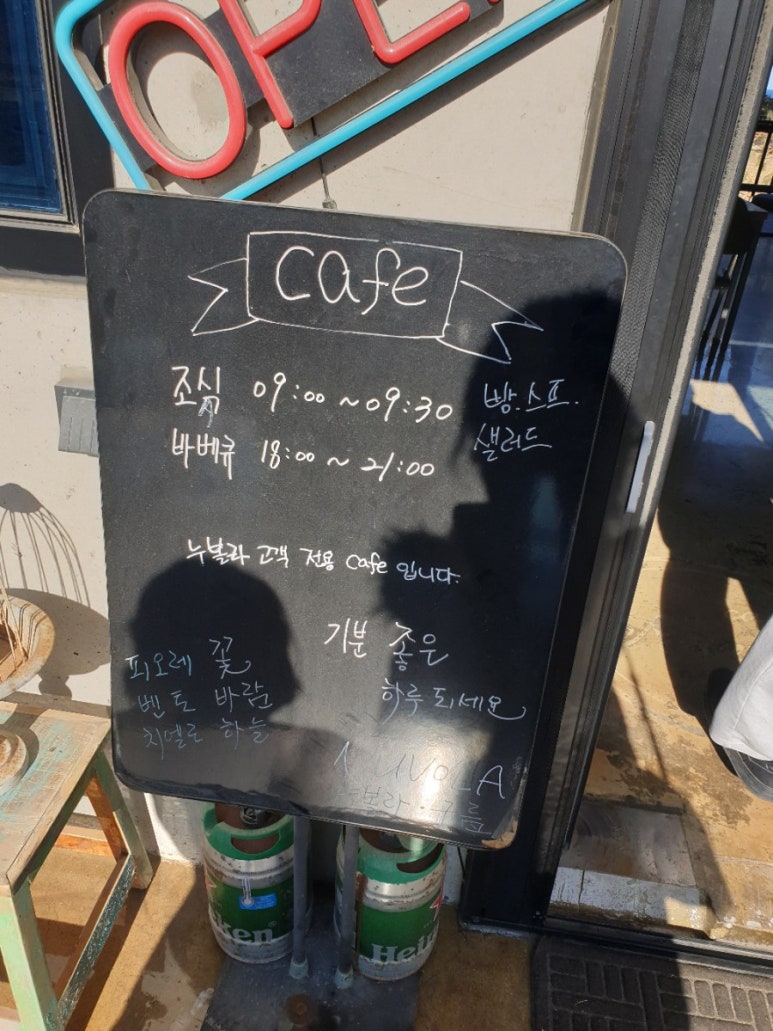 OPE
cafe
조식 09:00 ~ 09:30 빵.스프.
샐러드
바베큐 18:00 ~ 21:00
누볼라 고객 전용 cafe 입니다.
기분 좋은
하루 되세요
피오레 꽃
벤토 바람
치엘로 하늘
NUVOLA
누볼라 구름
ken
Hein